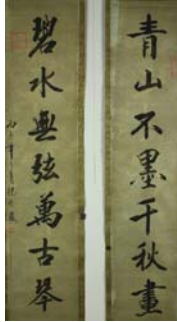 青山不墨千秋畫
碧水無弦萬古琴